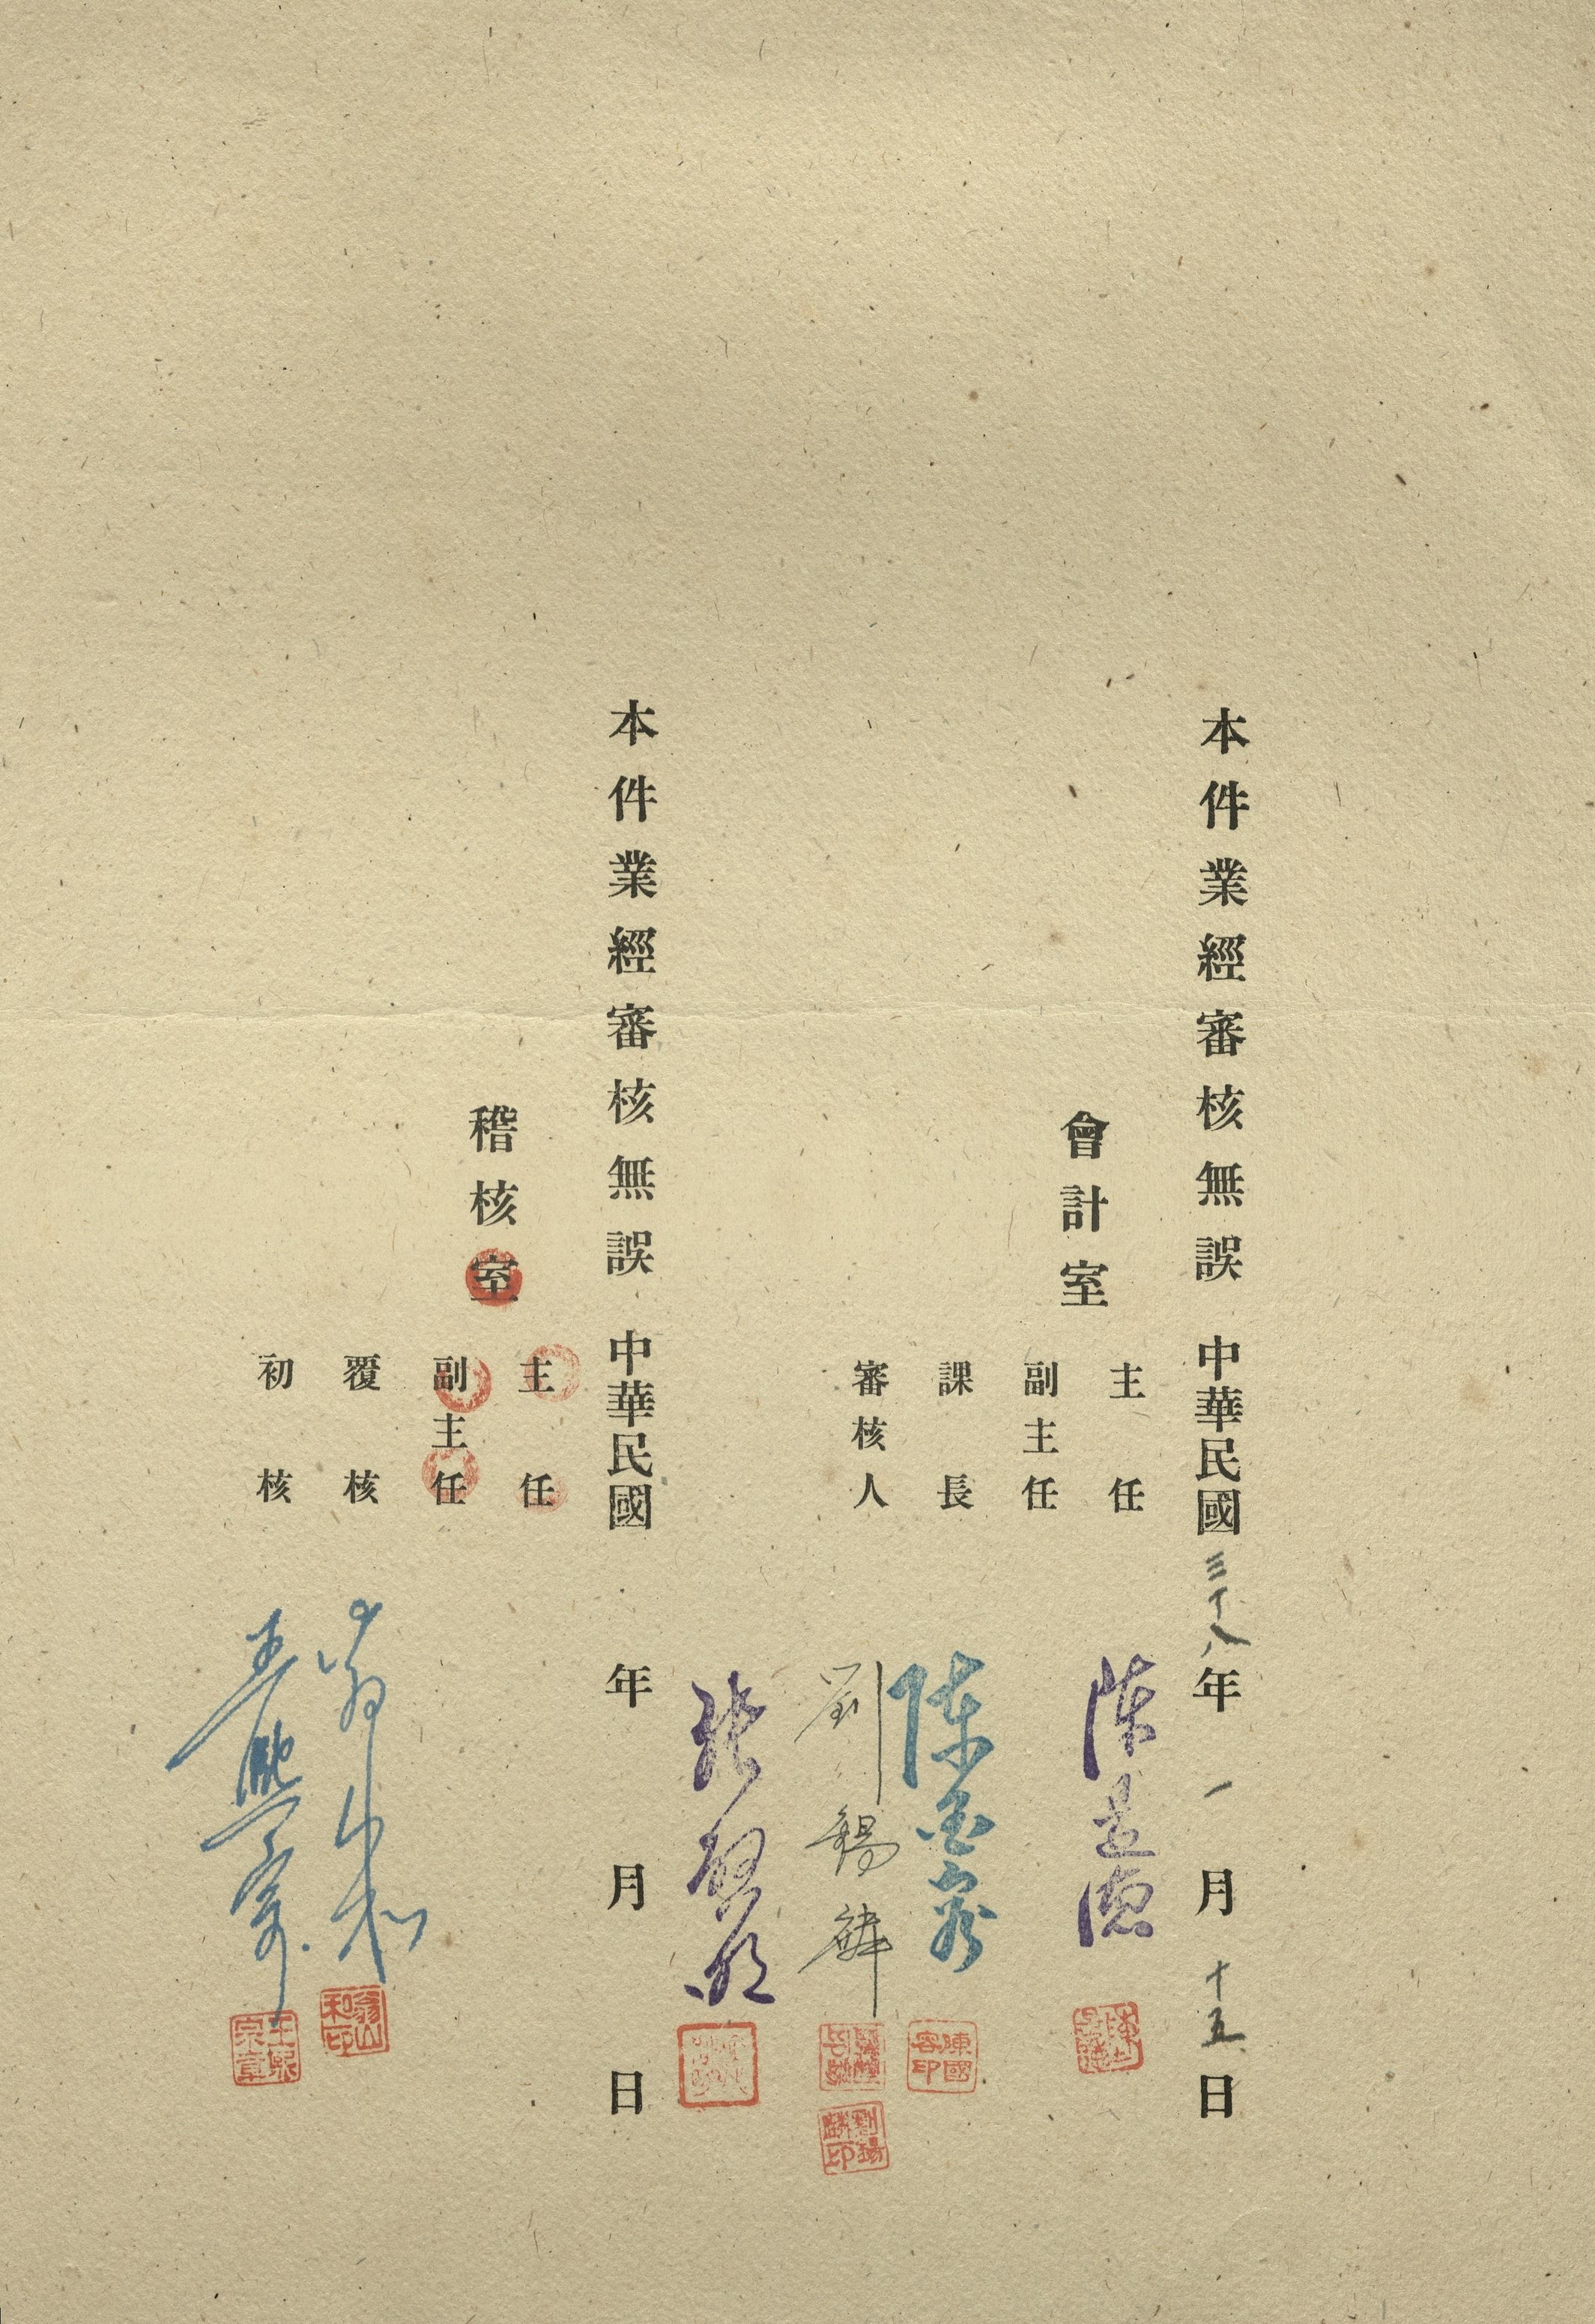 本件業經審核無誤 中華民國三十八年一月十五日
會計室
主任 陳
副主任
課長 陳國容
陳國容印
審核人 劉錫麟
劉錫麟印
本件業經審核無誤 中華民國 年 月 日
稽核室
主任
副主任
覆核 翁山和
翁山和印
初核 王熙宗
王熙宗章